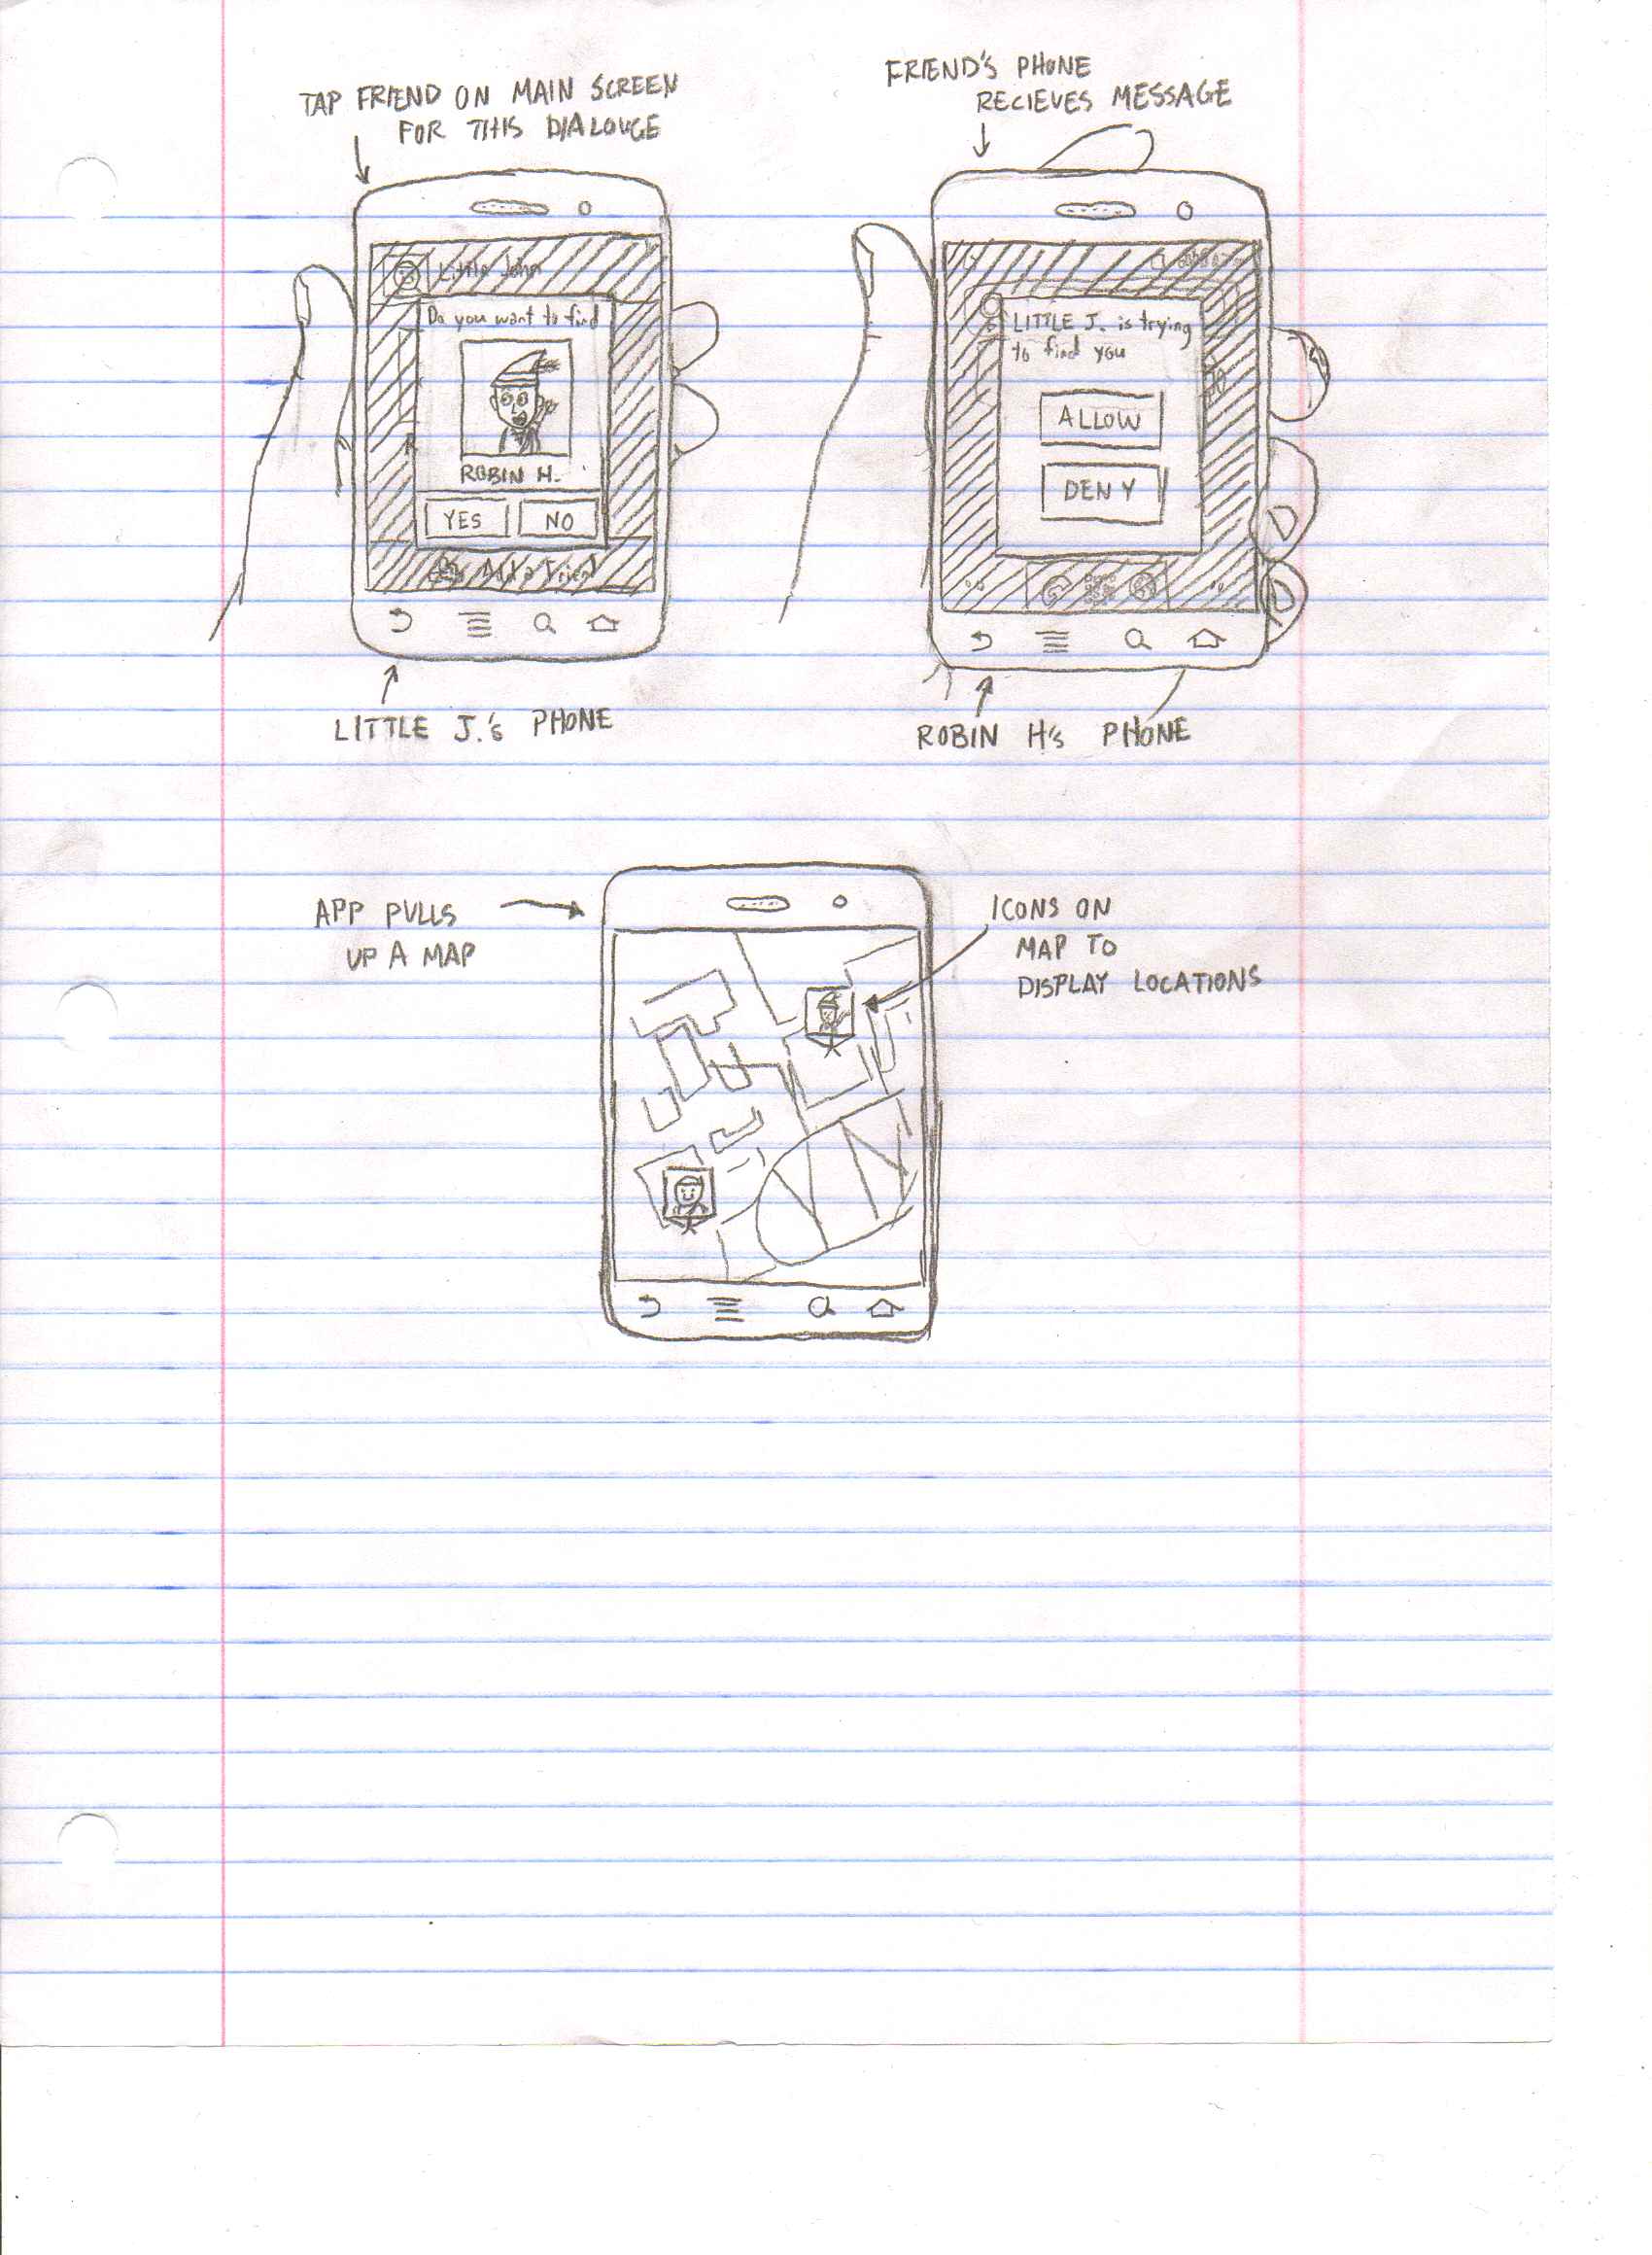 TAP FRIEND ON MAIN SCREEN
FOR THIS DIALOUGE
Little John
Do you want to find
ROBIN H.
YES
NO
Add a Friend
LITTLE J.'s PHONE
FRIEND'S PHONE
RECIEVES MESSAGE
LITTLE J. is trying
to find you
ALLOW
DENY
ROBIN H's PHONE
APP PULLS
UP A MAP
ICONS ON
MAP TO
DISPLAY LOCATIONS